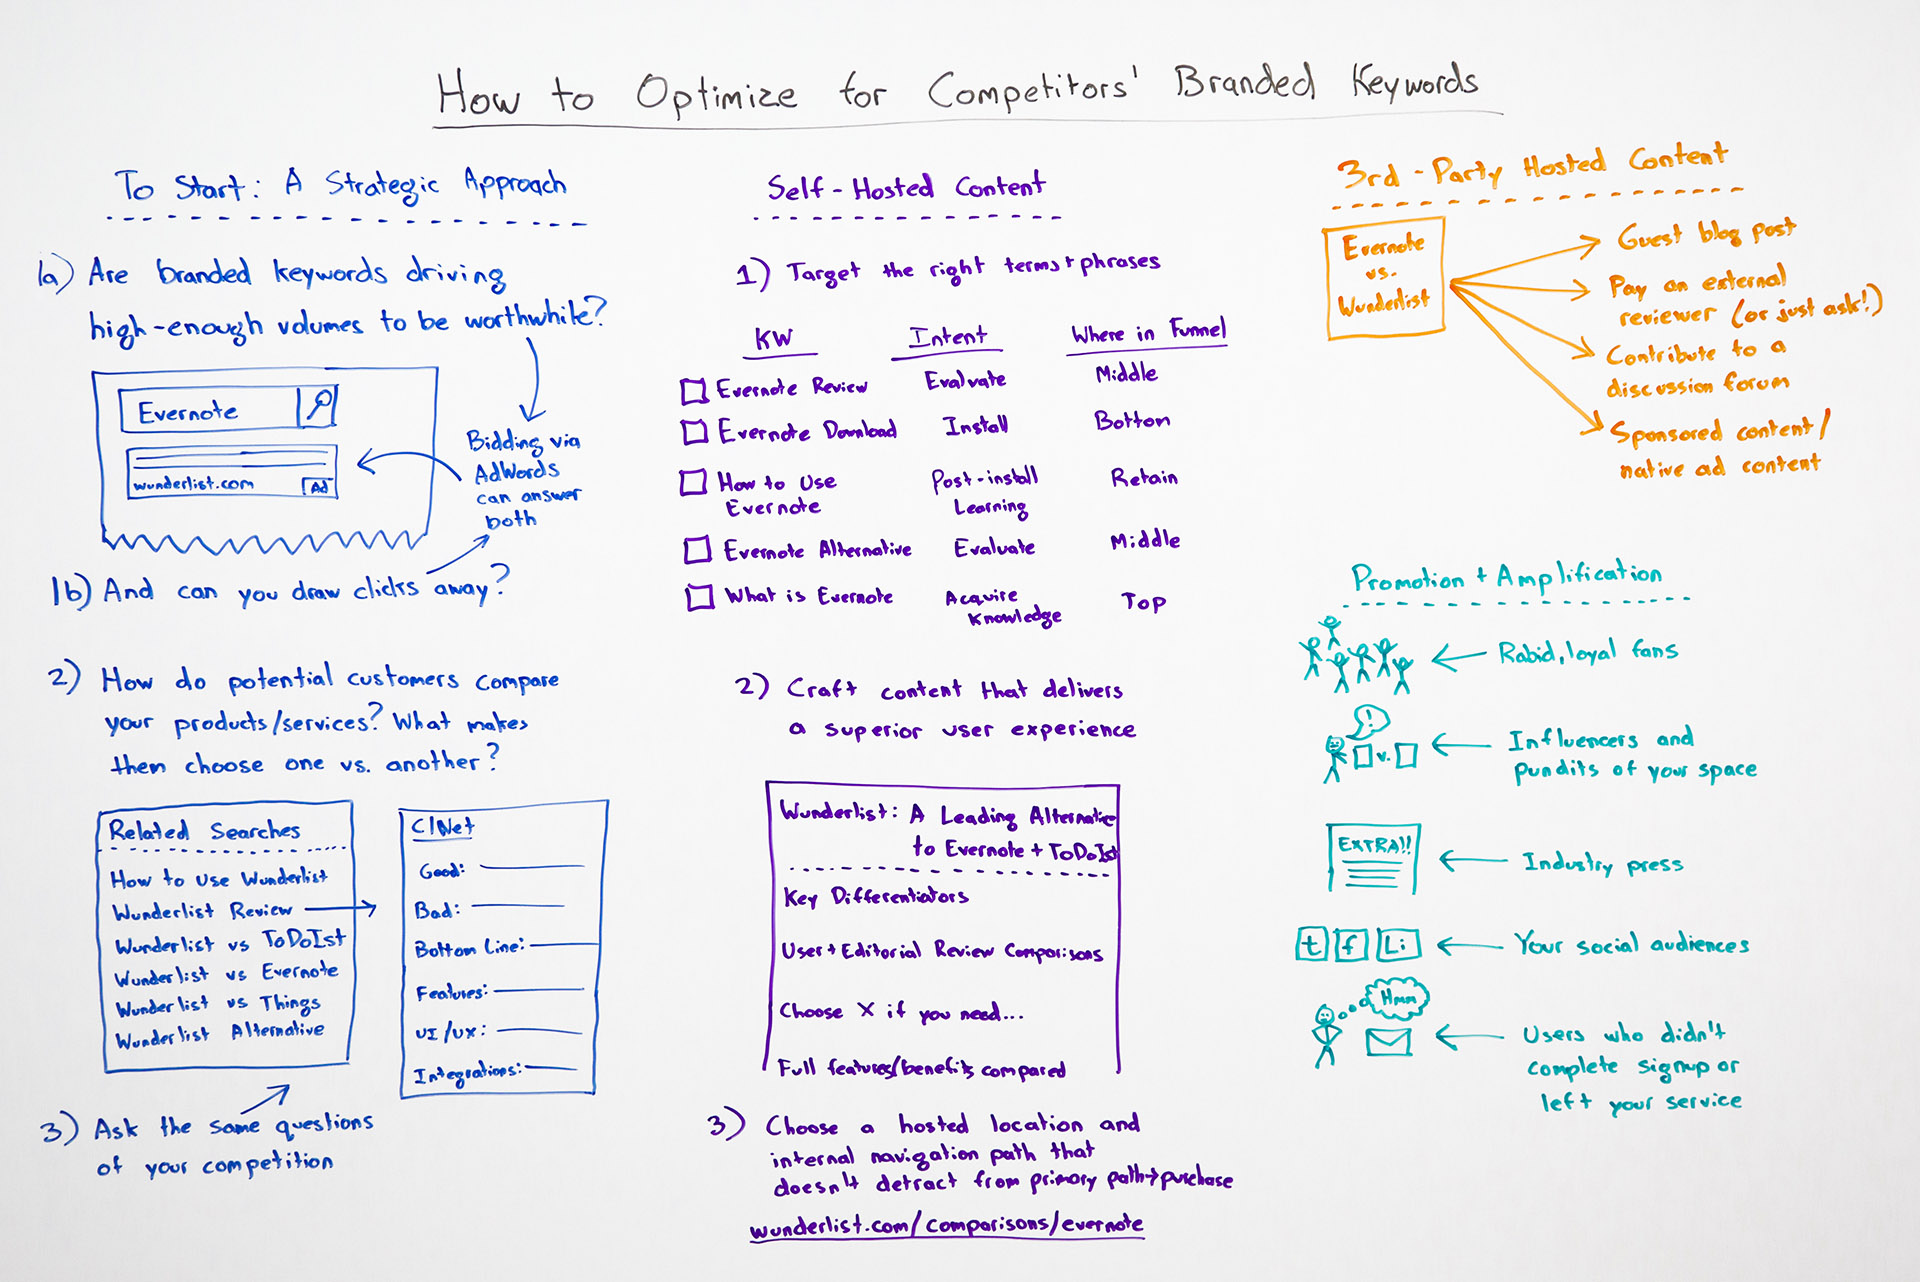 How to Optimize for Competitors' Branded Keywords
To Start: A Strategic Approach
1a) Are branded keywords driving
high-enough volumes to be worthwhile?
Evernote
wunderlist.com Ad
Bidding via
AdWords
can answer
both
1b) And can you draw clicks away?
2) How do potential customers compare
your products/services? What makes
them choose one vs. another?
Related Searches
How to Use Wunderlist
Wunderlist Review
Wunderlist vs ToDoIst
Wunderlist vs Evernote
Wunderlist vs Things
Wunderlist Alternative
C|Net
Good:
Bad:
Bottom Line:
Features:
UI/UX:
Integrations:
3) Ask the same questions
of your competition
Self-Hosted Content
1) Target the right terms + phrases
KW Intent Where in Funnel
Evernote Review Evaluate Middle
Evernote Download Install Bottom
How to Use Post-install Retain
Evernote Learning
Evernote Alternative Evaluate Middle
What is Evernote Acquire Top
Knowledge
2) Craft content that delivers
a superior user experience
Wunderlist: A Leading Alternative
to Evernote + ToDoIst
Key Differentiators
User + Editorial Review Comparisons
Choose X if you need...
Full features/benefits compared
3) Choose a hosted location and
internal navigation path that
doesn't detract from primary path→purchase
wunderlist.com/comparisons/evernote
3rd-Party Hosted Content
Evernote
vs.
Wunderlist
Guest blog post
Pay an external
reviewer (or just ask!)
Contribute to a
discussion forum
Sponsored content/
native ad content
Promotion + Amplification
Rabid, loyal fans
!
v.
Influencers and
pundits of your space
EXTRA!!
Industry press
t f Li
Your social audiences
Hmm
Users who didn't
complete signup or
left your service